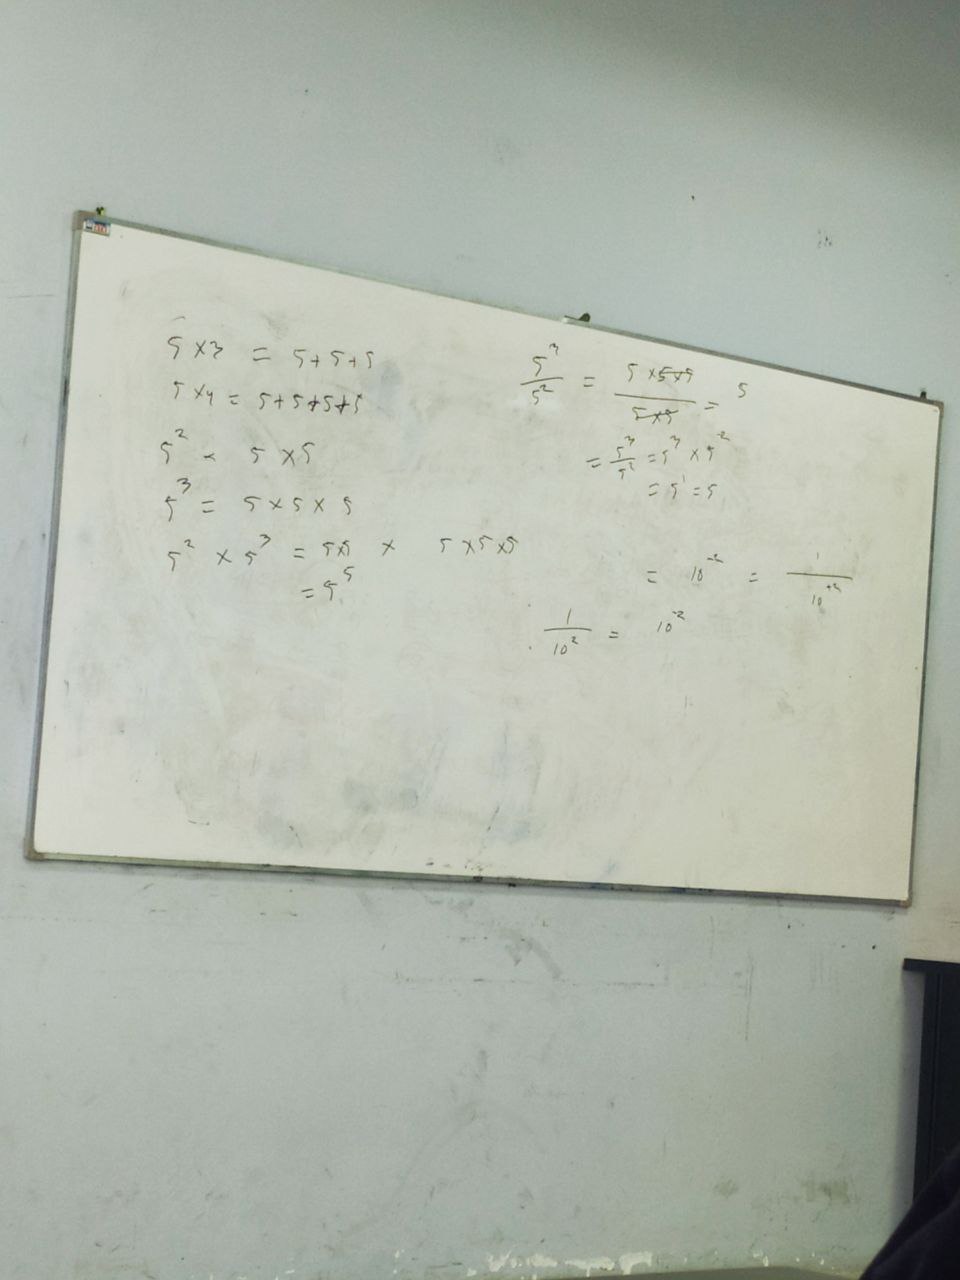 5 × 3 = 5 + 5 + 5
5 × 4 = 5 + 5 + 5 + 5
5² = 5 × 5
5³ = 5 × 5 × 5
5² × 5³ = 5×5 × 5 × 5 × 5
= 5⁵
5³/5² = 5 × 5 × 5 / 5 × 5 = 5
= 5³/5² = 5³ × 5⁻²
= 5¹ = 5
= 10⁻² = 1/10⁺²
1/10² = 10⁻²